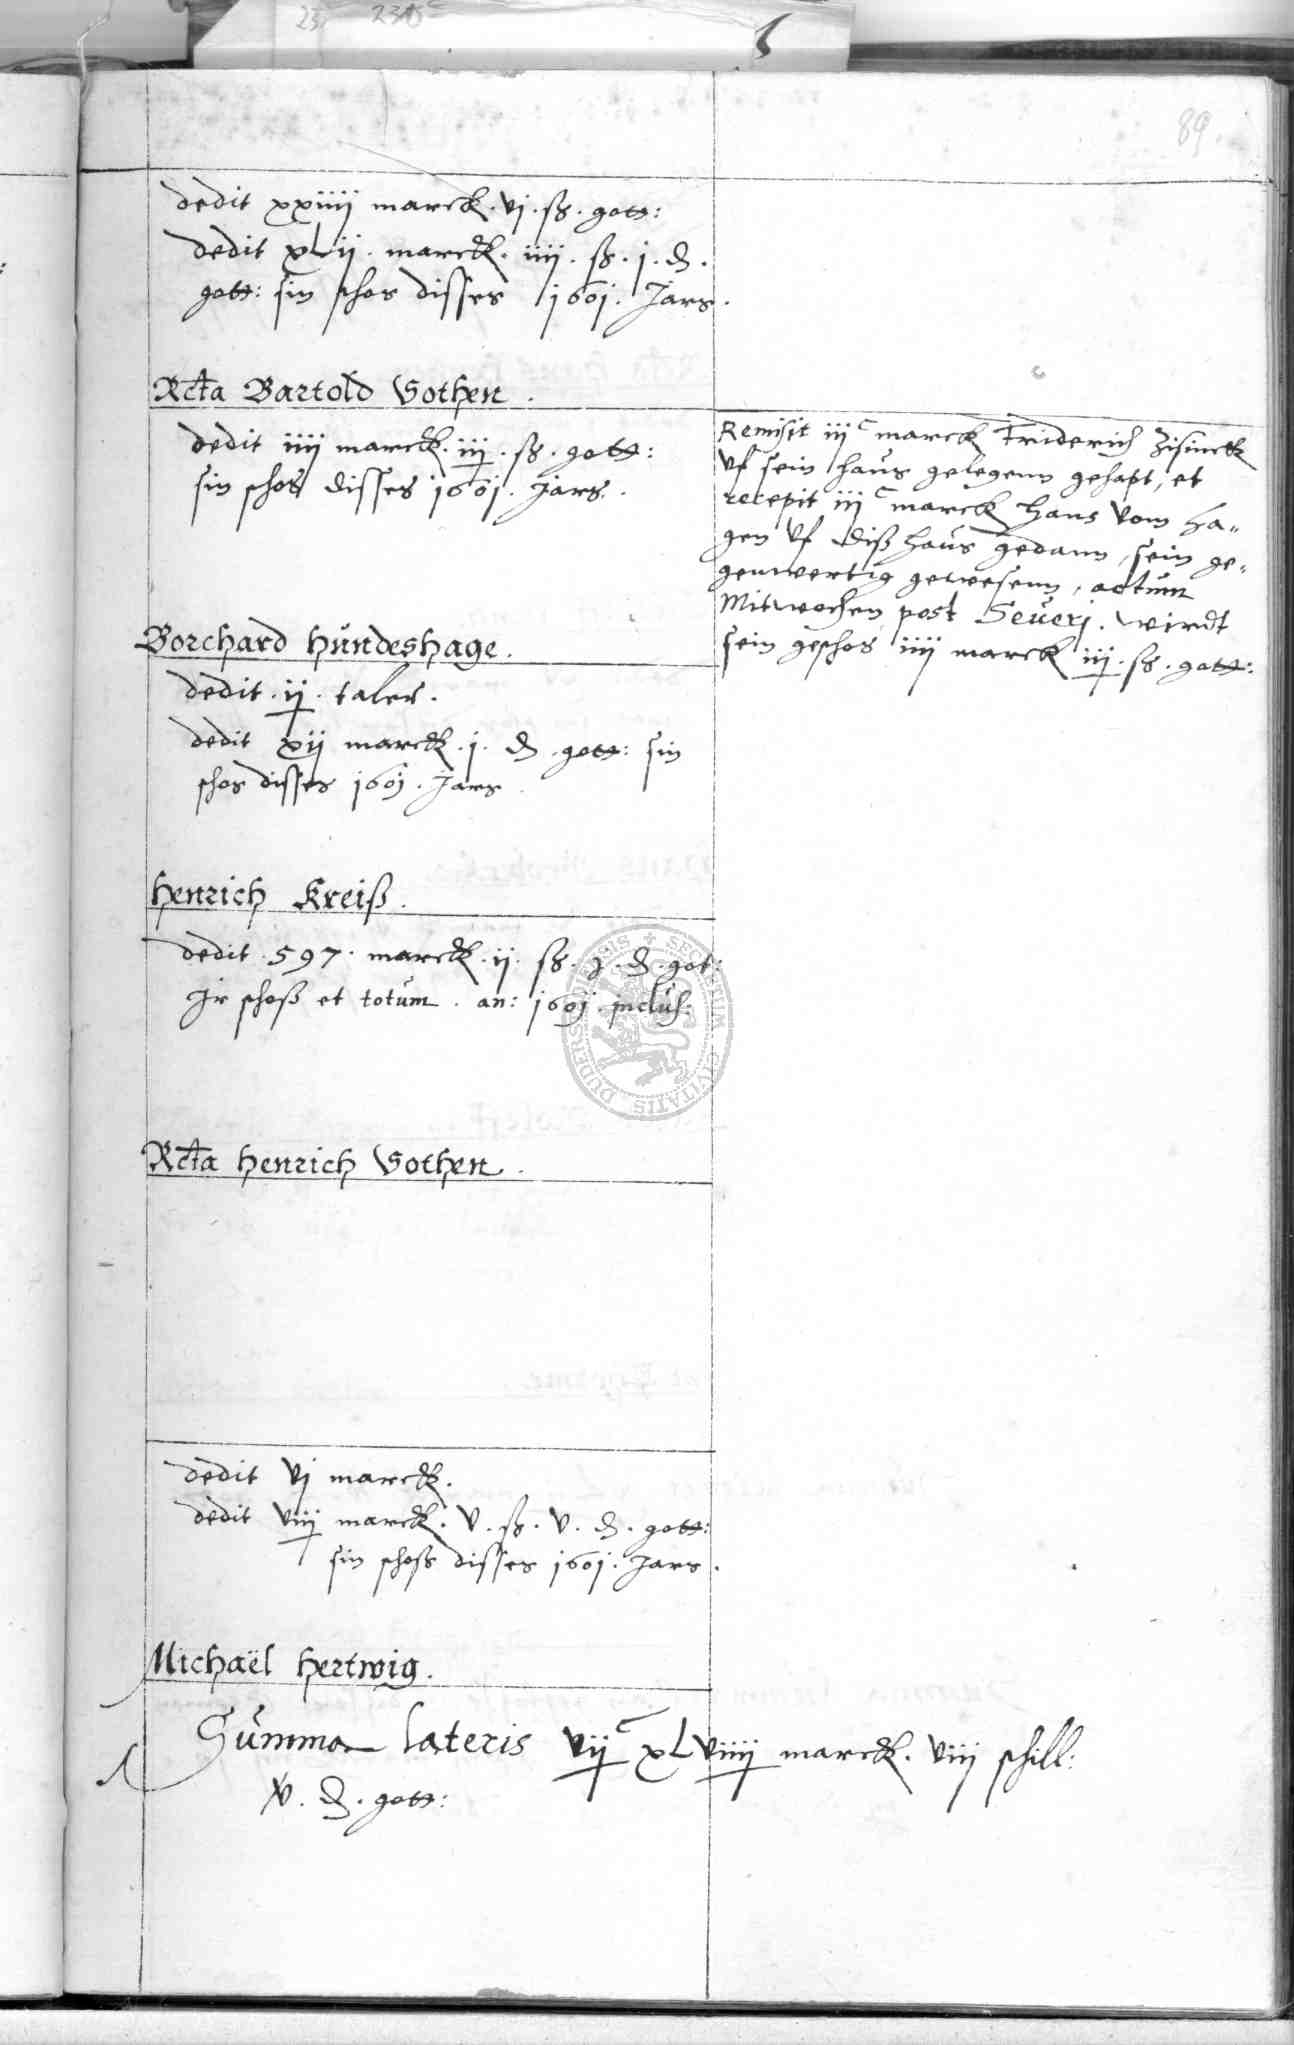 89
dedit xxiiii marck. vj. ß. gott:
dedit xLij. marck. iiij. ß. j. d.
gott: sin schos disses 1601. Jars.
Rcta Bartold Vothen.
dedit iiij marck. iij. ß. gott:
sin schos disses 1601. Jars.
Remisit iijc marck Friderich Zisinck
vf sein haus gelegenn gehapt, et
recepit iijc marck Hans vom Ha„
gen vf diß haus gedann, sein ge„
genwertig gewesenn, actum
Mitwochen post Severj. wirdt
sein geschos iiij marck iij. ß. gott:
Borchard Hündeshage.
dedit. ij. taler.
dedit xij marck. j. d. gott: sin
schos disses 1601. Jars
Henrich Kreiß.
dedit. 597. marck. ij. ß. j. d. got:
Jr schoß et totum. an: 1601. inclus:
SECRETUM CIVITATIS DUDERSTADIENSIS
Rcta Henrich Vothen.
dedit vj marck.
dedit viij marck. v. ß. v. d. gott:
sin schoß disses 1601. Jars.
Michaël Hertwig.
Summa lateris vijc xLviiij marck. viij schill:
v. d. gott: